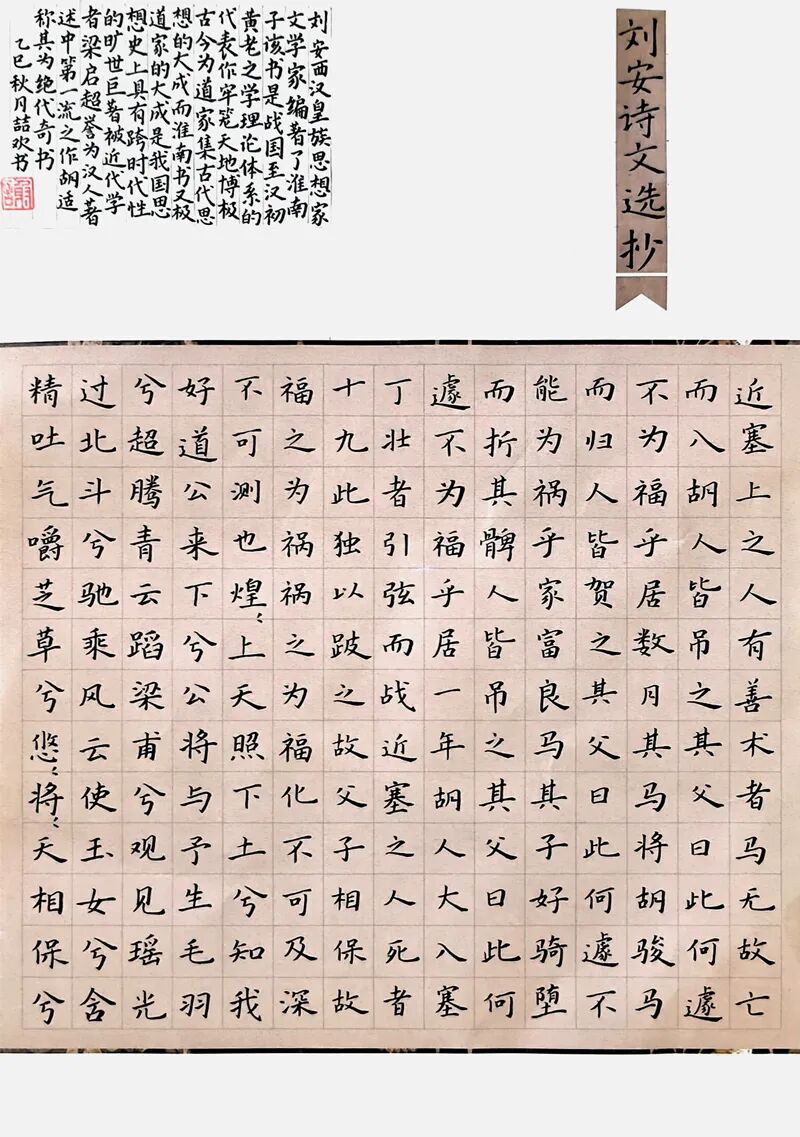 刘安诗文选抄
近塞上之人有善术者马无故亡
而入胡人皆吊之其父曰此何遽
不为福乎居数月其马将胡骏马
而归人皆贺之其父曰此何遽不
能为祸乎家富良马其子好骑堕
而折其髀人皆吊之其父曰此何
遽不为福乎居一年胡人大入塞
丁壮者引弦而战近塞之人死者
十九此独以跛之故父子相保故
福之为祸祸之为福化不可及深
不可测也煌〻上天照下土兮知我
好道公来下兮公将与予生毛羽
兮超腾青云蹈梁甫兮观见瑶光
过北斗兮驰乘风云使玉女兮含
精吐气嚼芝草兮悠〻将〻天相保兮
刘安西汉皇族思想家
文学家编著了淮南
子该书是战国至汉初
黄老之学理论体系的
代表作牢笼天地博极
古今为道家集古代思
想的大成而淮南书又极
道家的大成是我国思
想史上具有跨时代性
的旷世巨著被近代学
者梁启超誉为汉人著
述中第一流之作胡适
称其为绝代奇书
乙巳秋月喆欢书